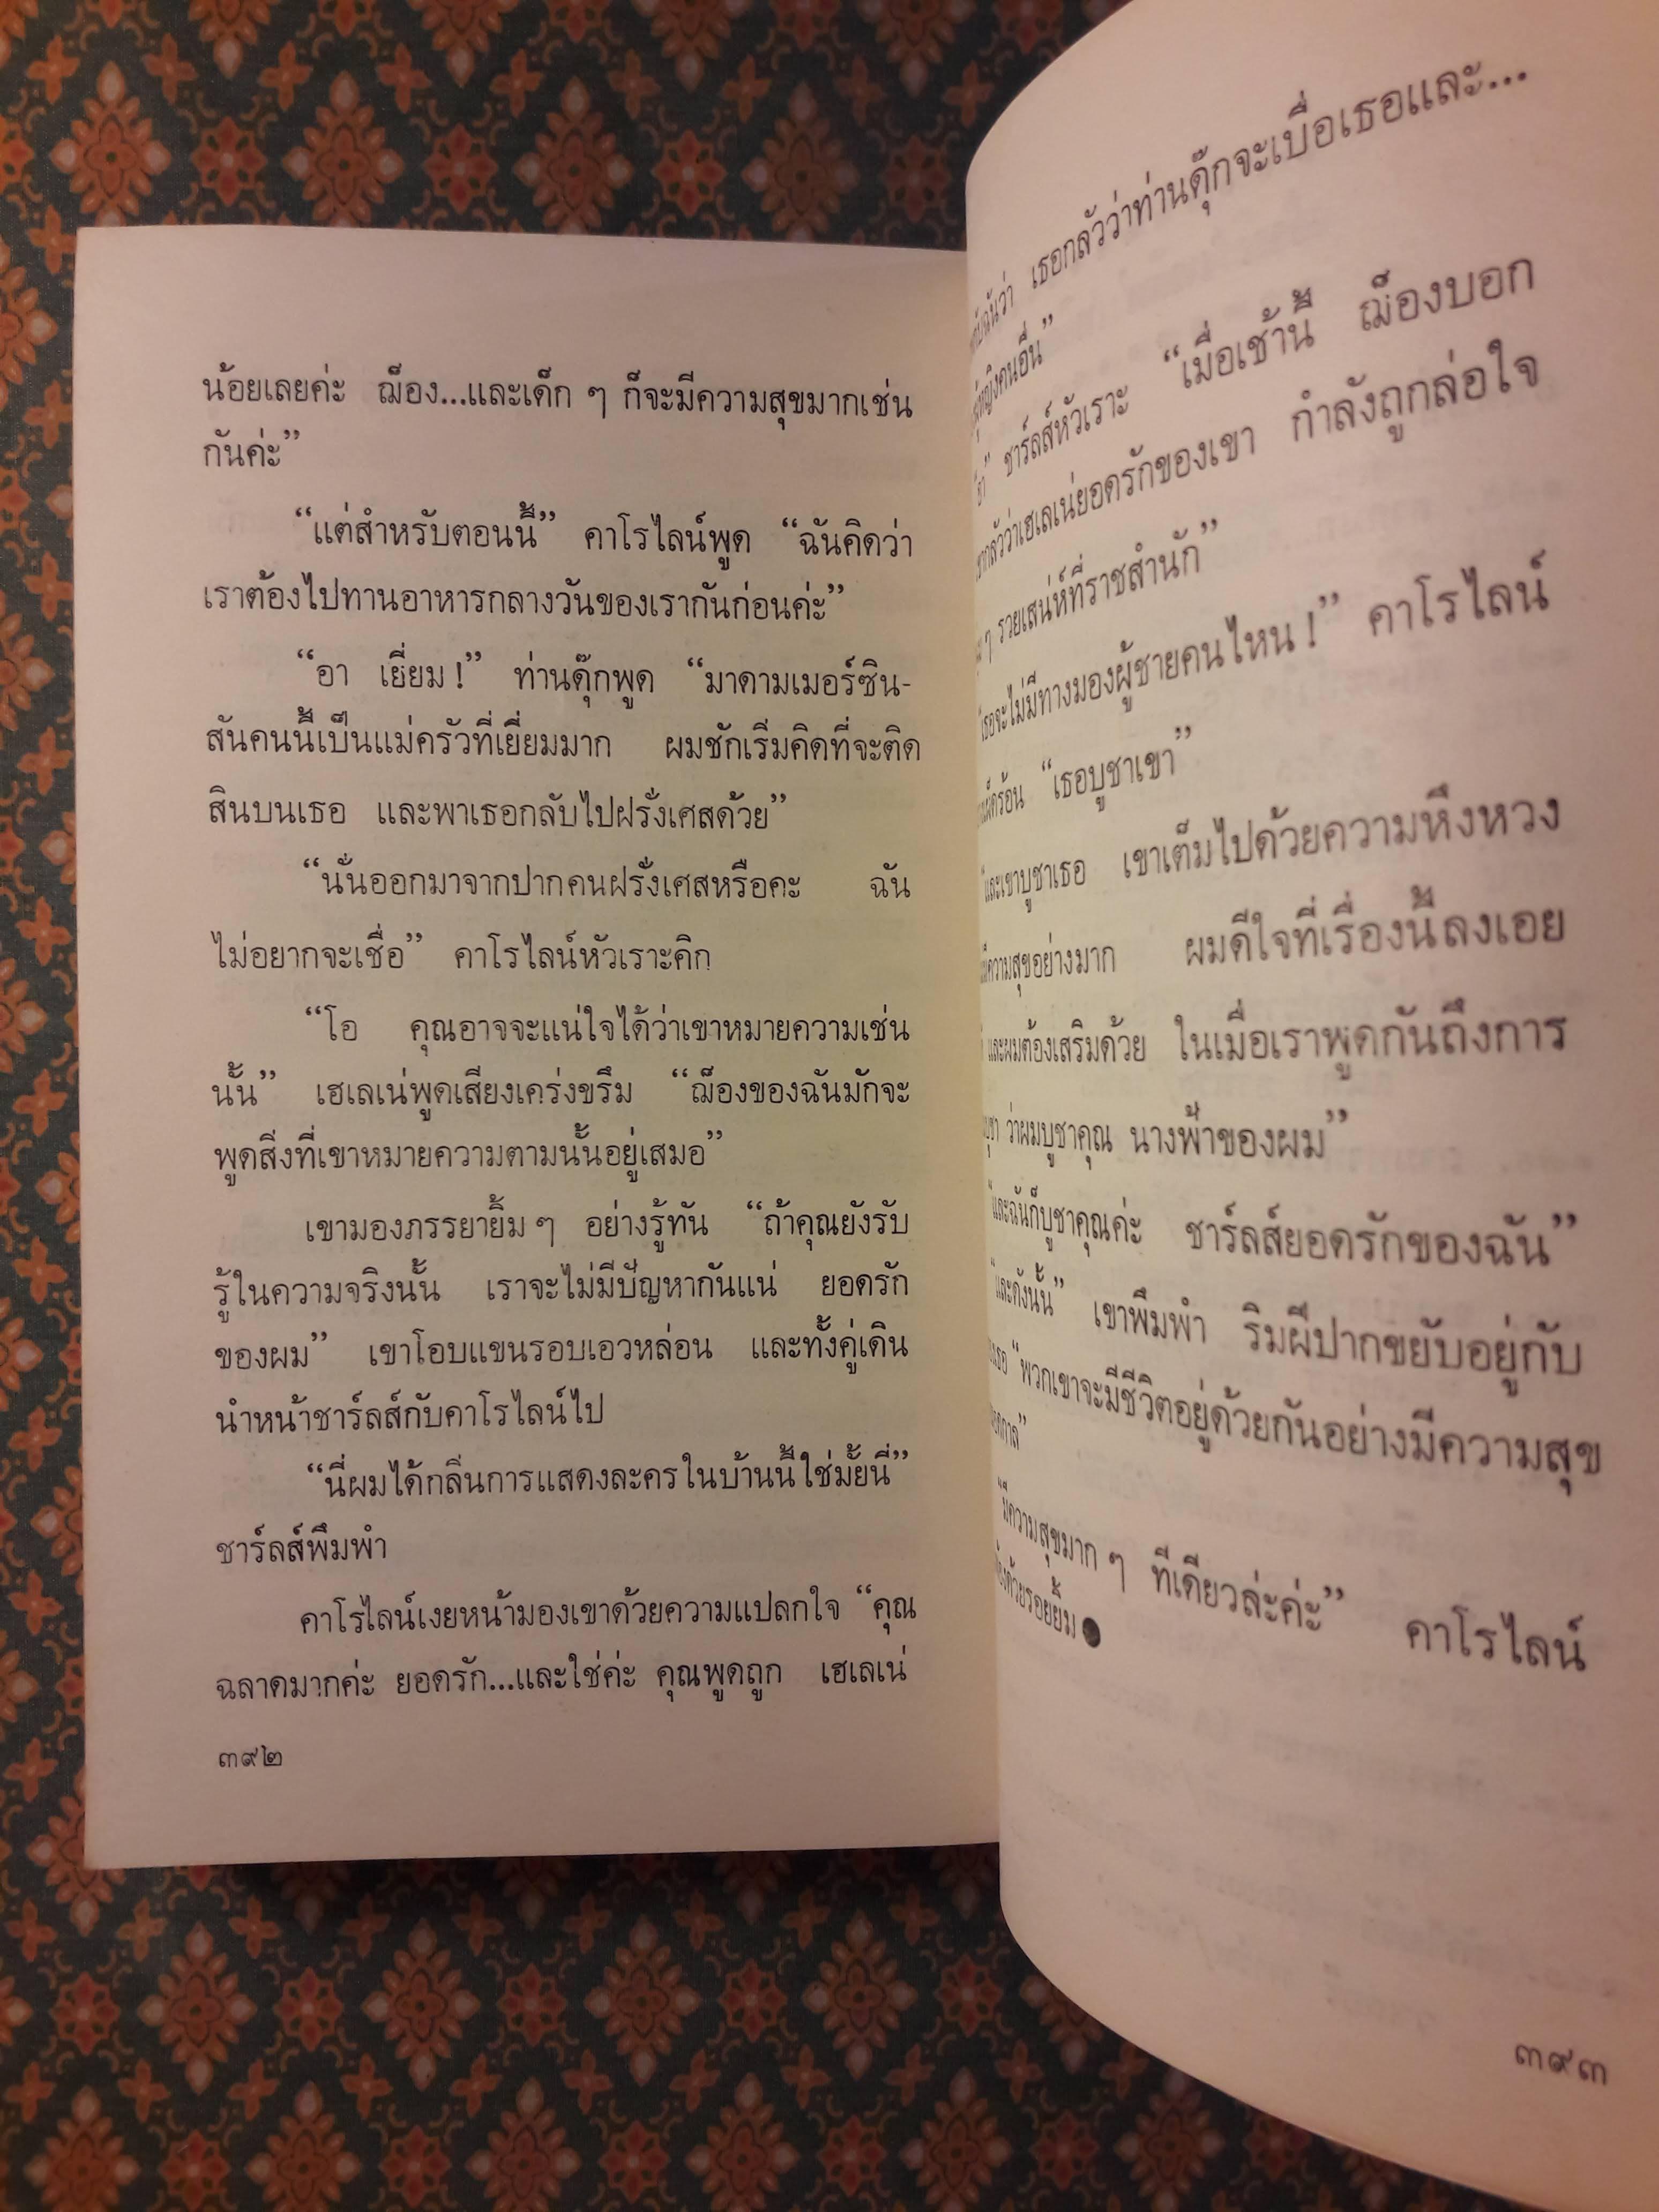 น้อยเลยค่ะ ฌ็อง...และเด็ก ๆ ก็จะมีความสุขมากเช่น
กันค่ะ”
“แต่สำหรับตอนนี้” คาโรไลน์พูด “ฉันคิดว่า
เราต้องไปทานอาหารกลางวันของเรากันก่อนค่ะ”
“อา เยี่ยม !” ท่านดุ๊กพูด “มาดามเมอร์ซิน-
สันคนนี้เป็นแม่ครัวที่เยี่ยมมาก ผมชักเริ่มคิดที่จะติด
สินบนเธอ และพาเธอกลับไปฝรั่งเศสด้วย”
“นั่นออกมาจากปากคนฝรั่งเศสหรือคะ ฉัน
ไม่อยากจะเชื่อ” คาโรไลน์หัวเราะคิก
“โอ คุณอาจจะแน่ใจได้ว่าเขาหมายความเช่น
นั้น” เฮเลเน่พูดเสียงเคร่งขรึม “ฌ็องของฉันมักจะ
พูดสิ่งที่เขาหมายความตามนั้นอยู่เสมอ”
เขามองภรรยายิ้ม ๆ อย่างรู้ทัน “ถ้าคุณยังรับ
รู้ในความจริงนั้น เราจะไม่มีปัญหากันแน่ ยอดรัก
ของผม” เขาโอบแขนรอบเอวหล่อน และทั้งคู่เดิน
นำหน้าชาร์ลส์กับคาโรไลน์ไป
“นี่ผมได้กลิ่นการแสดงละครในบ้านนี้ใช่มั้ยนี่”
ชาร์ลส์พึมพำ
คาโรไลน์เงยหน้ามองเขาด้วยความแปลกใจ “คุณ
ฉลาดมากค่ะ ยอดรัก...และใช่ค่ะ คุณพูดถูก เฮเลเน่
๓๙๒
เธอกลัวว่าท่านดุ๊กจะเบื่อเธอและ...
คนอื่น”
ชาร์ลส์หัวเราะ “เมื่อเช้านี้ ฌ็องบอก
กลัวว่าเฮเลเน่ยอดรักของเขา กำลังถูกล่อใจ
ๆ รวยเสน่ห์ที่ราชสำนัก”
เธอจะไม่มีทางมองผู้ชายคนไหน !” คาโรไลน์
“เธอบูชาเขา”
“และเขาบูชาเธอ เขาเต็มไปด้วยความหึงหวง
ความสุขอย่างมาก ผมดีใจที่เรื่องนี้ลงเอย
และผมต้องเสริมด้วย ในเมื่อเราพูดกันถึงการ
ว่าผมบูชาคุณ นางฟ้าของผม”
“และฉันก็บูชาคุณค่ะ ชาร์ลส์ยอดรักของฉัน”
“และดังนั้น” เขาพึมพำ ริมฝีปากขยับอยู่กับ
“พวกเขาจะมีชีวิตอยู่ด้วยกันอย่างมีความสุข
“มีความสุขมาก ๆ ทีเดียวล่ะค่ะ” คาโรไลน์
ด้วยรอยยิ้ม ●
๓๙๓